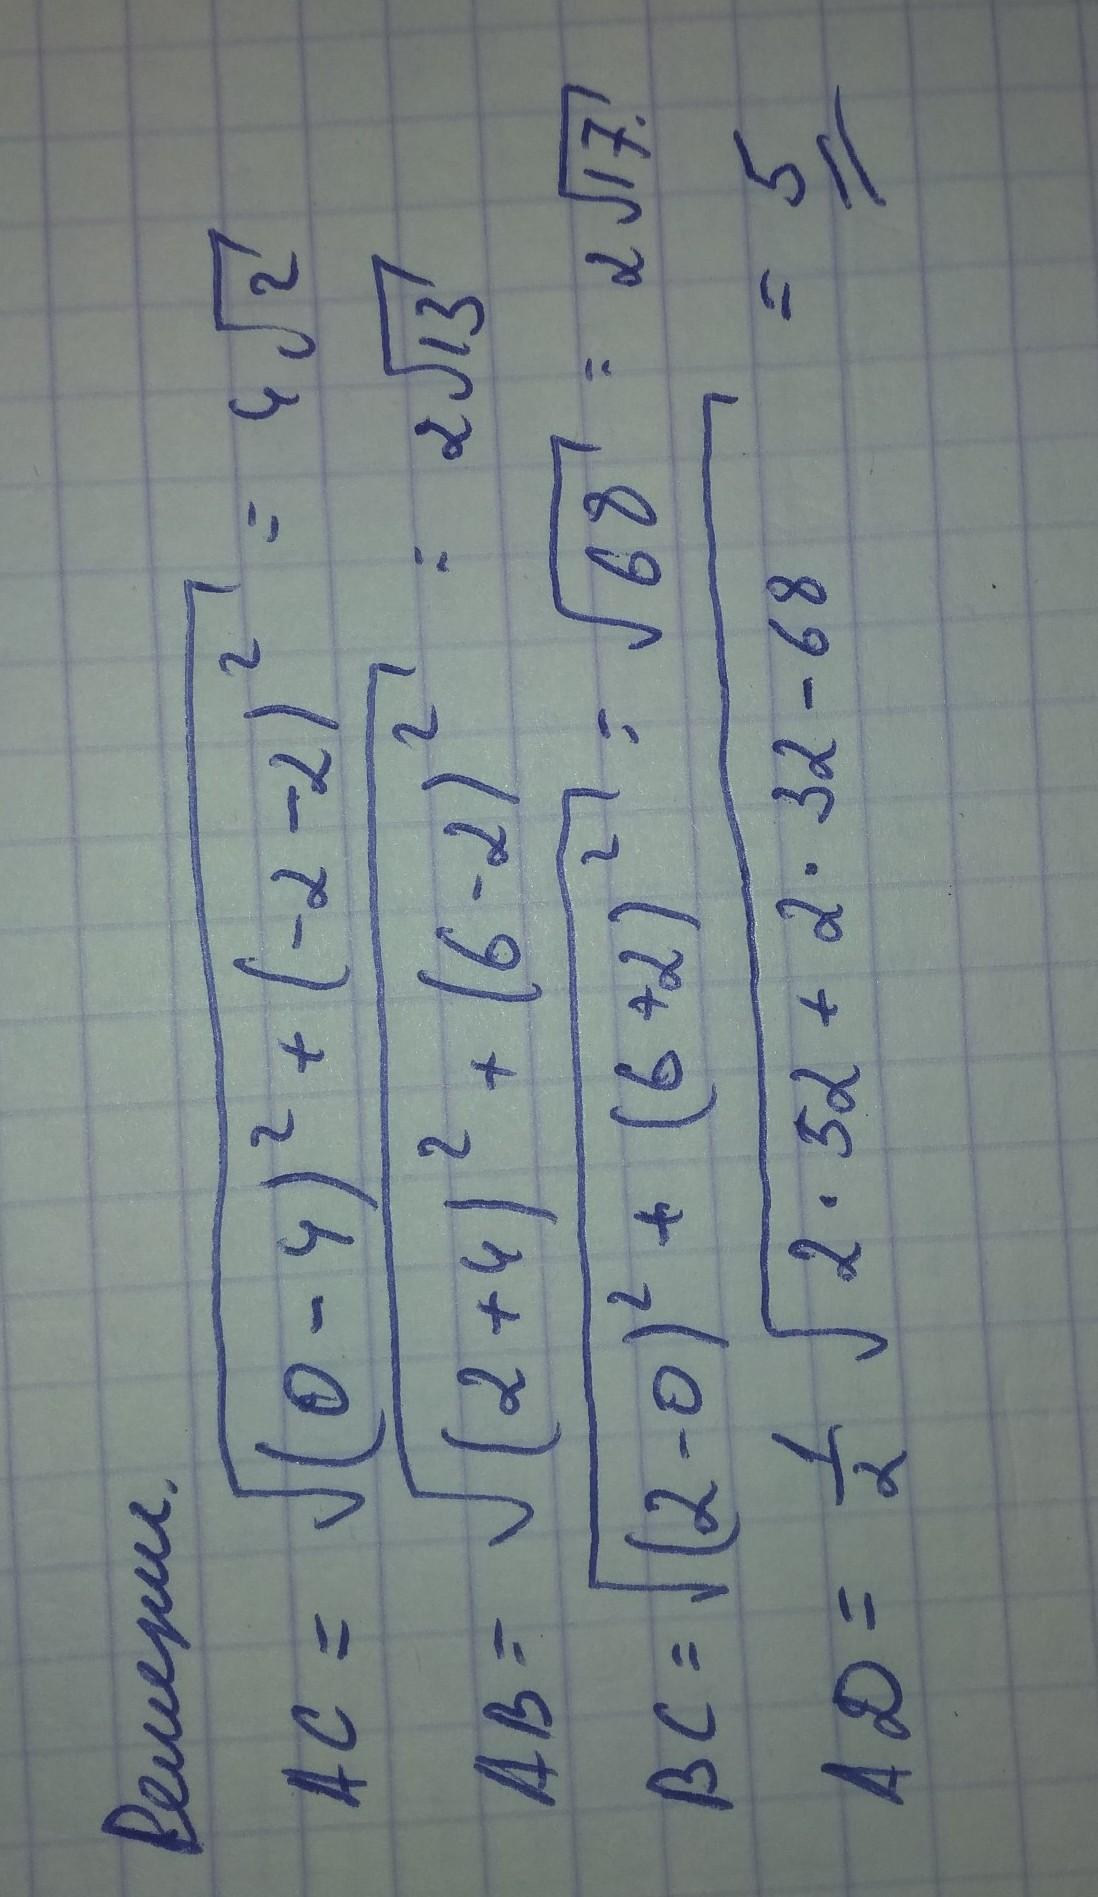 Решение.
AC = √((0-4)² + (-2-2)²) = 4√2
AB = √((2+4)² + (6-2)²) = 2√13
BC = √((2-0)² + (6+2)²) = √68 = 2√17.
AD = 1/2 √(2·52 + 2·32-68) = 5